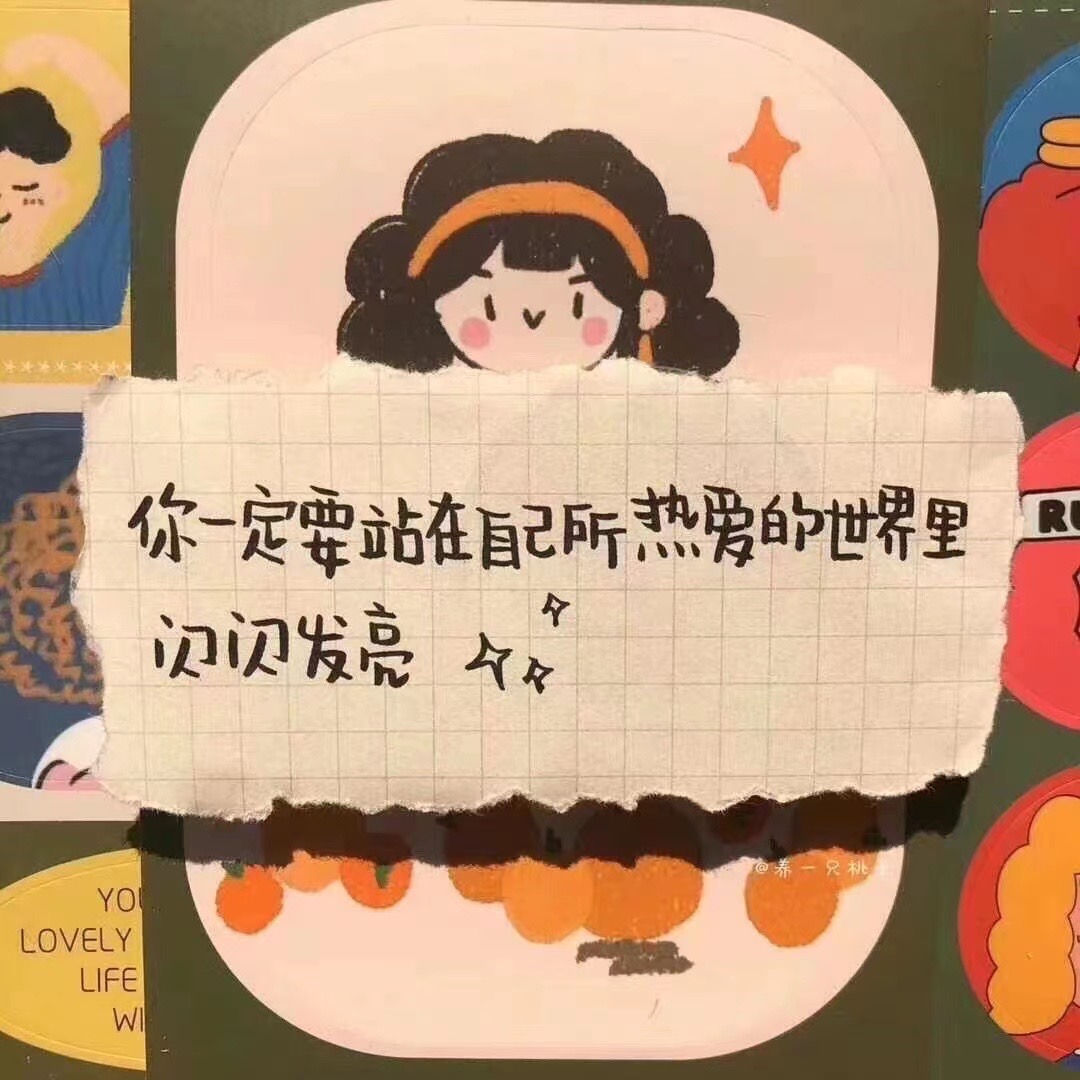 你一定要站在自己所热爱的世界里
闪闪发亮
@养一只桃
YOU
LOVELY
LIFE
WI
RU